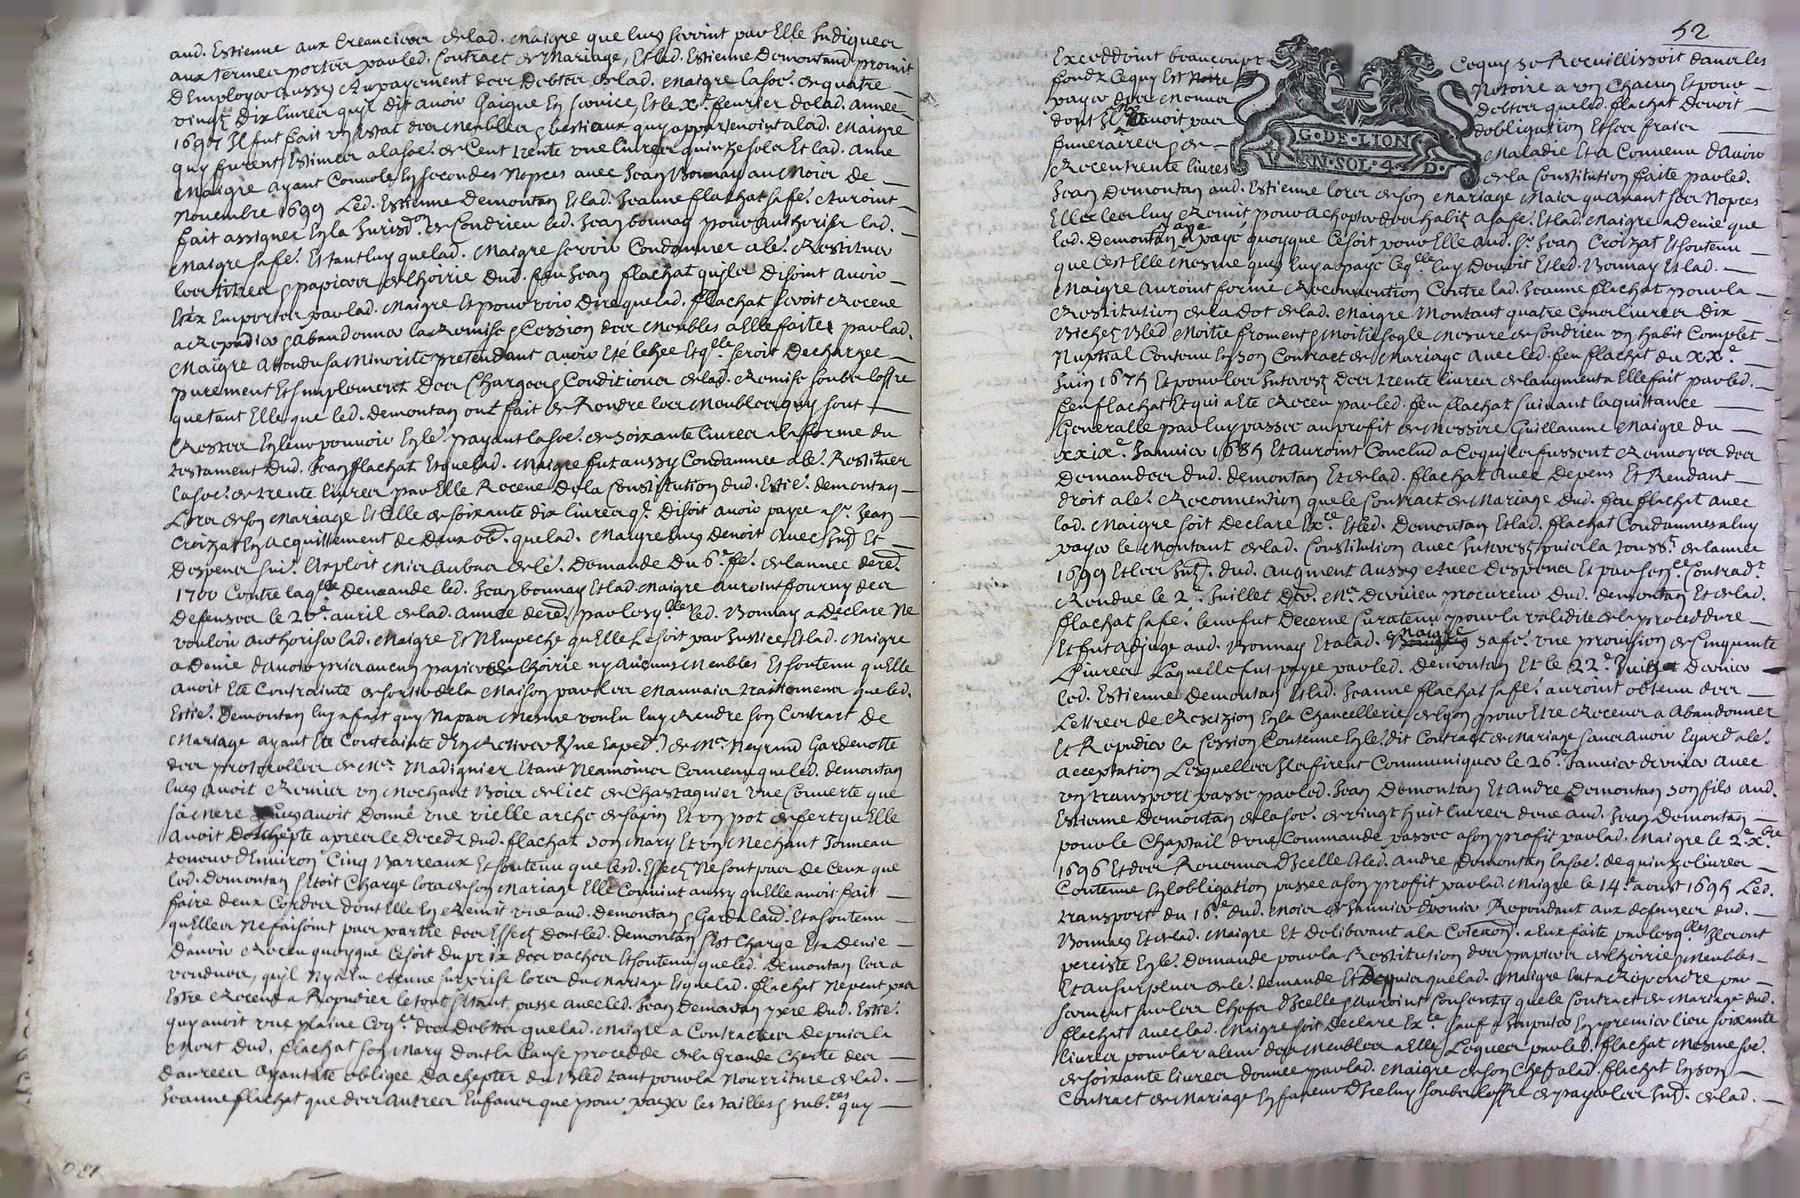 aud. Estienne aux Creanciers de lad. Maigre que luy seroint par Elle Indiquer
aux termes portes par led. Contract de Mariage, Et led. Estienne Demontand promit
D'Employer aussy au payement des debtes de lad. Maigre la soe. de quatre
vingt dix livres qu'il dit avoir Gaigné En service, Et le Xe. feurier de lad. année
1697 Il fut fait un Estat des Meubles & bestiaux quy appartenoint a lad. Maigre
quy furent Estimes a la soe. de Cent trente une livres quintze sols Et lad. Anne
Maigre ayant Convolé En secondes Nopces avec Jean Bonnay au Mois de
Novembre 1699 Led. Estienne Demontan Et lad. Jeanne flachat sa fe. auroint
fait assigner En la Jurisdon. de Condrieu led. Jean bonnay pour authoriser lad.
Maigre sa fe. Et tant luy que lad. Maigre se voir Condamner a le. Restituer
les titres & papiers de l'hoirie dud. feu Jean flachat qu'ils disoint avoir
Estéz Emportes par lad. Maigre Et pour voir dire que lad. flachat seroit Receue
a Repudier & abandonner la Remise & Cession des Meubles a Elle faite par lad.
Maigre attendu sa Minorité pretendant avoir Eté lezée Et qlle seroit Dechargee
purement Et simplement des Charges & Conditions de lad. Remise soubs l'offre
que tant Elle que led. demontan ont fait de Rendre les Meubles quy sont
Restes En leur pouvoir En le. payant la soe. de soixante livres a la forme du
testament dud. Jean flachat Et que lad. Maigre fut aussy Condamnee a le. Restituer
la soe. de trente livres par Elle Receue de la Constitution dud. Estie. demontan
Lors de son Mariage Et Celle de soixante dix livres qe. disoit avoir payee a Sr. Jean
Croizat En acquittement de deux ob. que lad. Maigre luy devoit Avec Int Et
Despens sui. Exploit Mis au bas de le. Demande du 6e. fe. de lannee dere.
1700 Contre laqlle demande led. Jean bonnay Et lad. Maigre auroint fourny des
defenses le 20e. avril de lad. année dere. par lesqlle led. Bonnay a Declaré Ne
vouloir authoriser lad. Maigre Et N'Empeche qu'Elle Le soit par Justice Et lad. Maigre
a denié d'avoir pris aucuns papiers de l'hoirie ny Aucuns Meubles Et soutenu qu'Elle
avoit Eté Contrainte de sortir de la Maison par les Mauvais traittemens que led.
Estie. demontan luy a fait quy Na pas Mesme voulu luy Rendre son Contract de
Mariage ayant Eté Contrainte d'En Retirer Une Exped. de Me. Neyrand Gardenotte
des protocolles de Me. Madignier Etant Neamoins Convenu que led. demontan
luy avoit Remis un Mechant Bois de lict de Chastagnier une Couverte que
sa Mere luy avoit donné une vielle arche de sapin Et un pot de fert qu'Elle
avoit achepté apres le decedz dud. flachat son Mary Et un Mechant Tonneau
teneur d'Environ Cinq Barreaux Et soutenu que lesd. Effects Ne sont pas de Ceux que
led. demontan s'Etoit Chargé lors de son Mariage Elle Convint aussy qu'Elle avoit fait
faire deux Cordes dont Elle En Remit une aud. demontan & Garda laud. Et a soutenu
qu'Elles Ne faisoint pas partie des Effects dont led. demontan s'Est Chargé Et a Denié
d'avoir Receu quoyque Ce soit du prix des vaches Et soutenu que led. Demontan les a
vendues, qu'il Ny a Eu aucune surprise lors du Mariage Et que lad. flachat Ne peut pas
Estre Receue a Repudier le tout s'Etant passé avec led. Jean Demontan pere dud. Estie.
quy avoit une plaine Coge. des debtes que lad. Maigre a Contractees depuis la
Mort dud. flachat son Mary dont la Cause procedde de la Grande Cherté des
danrees ayant Eté obligée D'achepter du Bled tant pour la Nourriture de lad.
Jeanne flachat que des autres Enfans que pour payer les tailles & subres quy
52
Exceddoint beaucoup Ce quy se Recuillissoit dans les
fondz Ce quy Est Notoire a un Chacun Et pour
payer des Mennes debtes que led. flachat devoit
dont Il avoit pas d'obligation Et ses fraix
funeraires & de Maladie Et a Convenu d'avoir
Receu trente livres de la Constitution faite par led.
G·DE·LION
EN·SOL·4·D·
Jean Demontan aud. Estienne lors de son Mariage Mais qu'avant ses Nopces
Elle les luy Remit pour achepter des habits a sa fe. Et lad. Maigre a Denié que
led. Demontan aye payé quoyque Ce soit pour Elle aud. Sr. Jean Croizat Et soutenu
que C'est Elle Mesme quy luy a payé Ce qlle luy devoit Et led. Bonnay Et lad.
Maigre auroint formé Reconvention Contre lad. Jeanne flachat pour la
Restitution de la dot de lad. Maigre Montant quatre Cens livres dix
Bichets Bled Moitié froment & Moitié segle Mesure de Condrieu un habit Complet
Nuptial Contenu En son Contract de Mariage Avec led. feu flachat du XXe.
Juin 1675 Et pour les Interests des trente livres de laugment a Elle fait par led.
feu flachat Et qui a Eté Receu par led. feu flachat suivant la quittance
Generalle par luy passee au profit de Messire Guillaume Maigre du
xxixe. Janvier 1685 Et auroint Conclud a Ce qu'ils fussent Renvoyes des
demandes dud. demontan Et de lad. flachat Avec depens Et Rendant
droit a le. Reconvention que le Contract de Mariage dud. feu flachat avec
lad. Maigre soit Declaré Exre Et led. Demontan Et lad. flachat Condamnes a luy
payer le Montant de lad. Constitution avec Interests puis la touss. de lannee
1699 Et les Int. dud. Augment Aussy avec despens Et par sence. Contradt.
Rendue le 2e. Juillet Dr. Me. Dervieu procureur dud. demontan Et de lad.
flachat sa fe. leur fut Decerné Curateur pour la validité de la procedure
Et fut adjugé aud. Bonnay Et a lad. Maigre sa fe. une provision de Cinquante
Livres Laquelle fut payé par led. Demontan Et le 22e. Juillet dernier
led. Estienne Demontan Et lad. Jeanne flachat sa fe. auroint obtenu des
Lettres de Rescizion En la Chancellerie de Lyon pour Etre Receues a Abandonner
Et Repudier la Cession Contenue En le. dit Contract de Mariage sans avoir Egard a le.
acceptation Lesquelles Ils firent Communiquer le 26e. Janvier dernier avec
un transport passé par led. Jean Demontan Et andré Demontan son fils aud.
Estienne Demontan de la soe. de vingt huit livres deue aud. Jean Demontan
pour le Chaptail d'une Commande passee a son profit par lad. Maigre le 2e. Xbre
1696 Et des Revenus D'Icelle Et led. André Demontan la soe. de quinze livres
Contenue En l'obligation passee a son proffit par lad. Maigre le 14e. aoust 1695 Led.
transport du 16e. dud. Mois de Janvier dernier Repondant aux defenses dud.
Bonnay Et de lad. Maigre Et delibérant a la Coenon. a Eux faite par lesqlles Ils ont
perciste En le. demande pour la Restitution des papiers de l'hoirie & Meubles
Et au surplus de le. demande Et Requis que lad. Maigre Eut a Repondre par
serment sur les Chefs d'Icelle & auroint Consenty que le Contract de Mariage dud.
flachat avec lad. Maigre soit Declaré Exre sauf a Imputer En premier lieu soixante
livres pour la valeur des Meubles a Elle Legués par led. flachat Mesme soe.
de soixante livres donnee par lad. Maigre de son Chef a lad. flachat En son
Contract de Mariage En faveur d'Iceluy soubs l'offre de payer les Int. de lad.